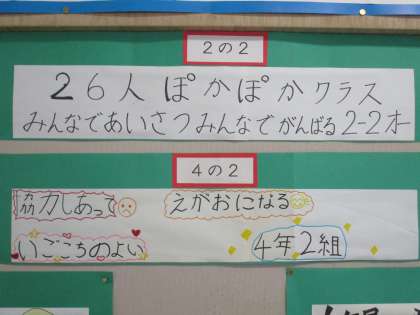 2の2
26人 ぽかぽかクラス
みんなであいさつみんなでがんばる2-2オー
4の2
協力しあって えがおになる
いごこちのよい 4年2組